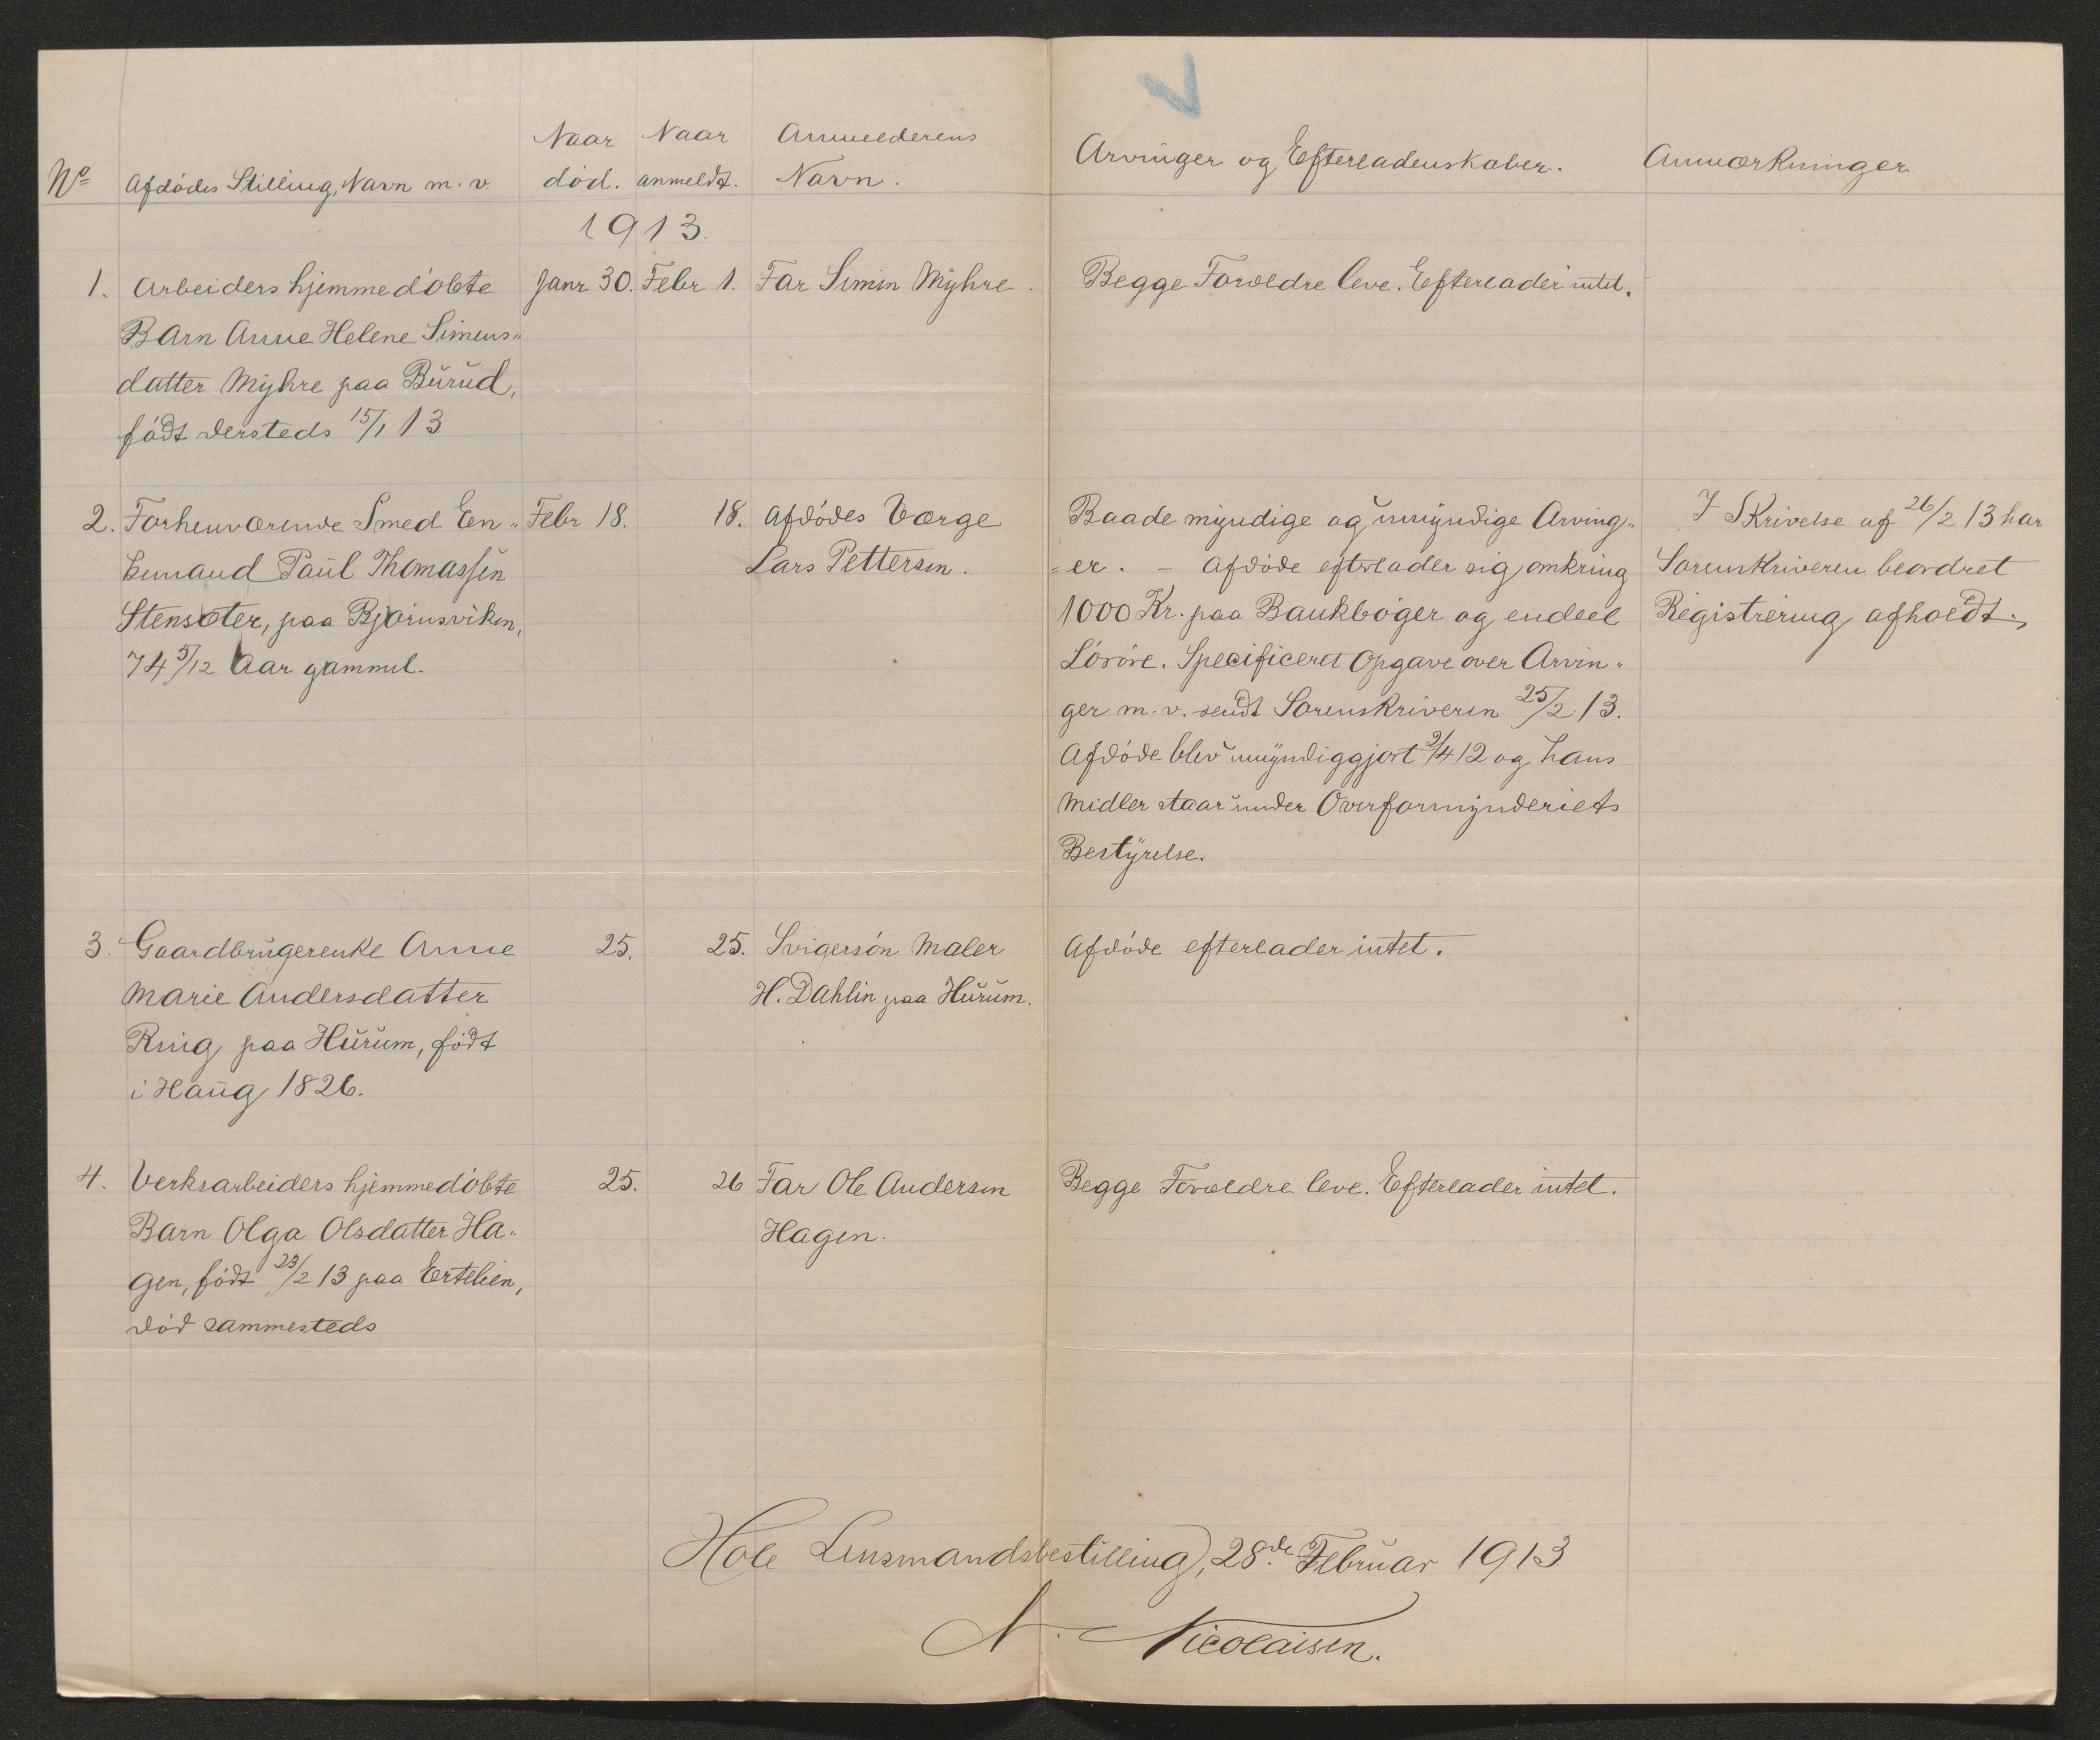 No Afdødes Stilling, Navn m. v. Naar død. Naar anmeldt. Anmelderens Navn. Arvinger og Efterladenskaber. Anmærkninger
1913.
1. Arbeiders hjemmedøbte Janr 30. Febr 1. Far Simen Myhre. Begge Forældre leve. Efterlader intet.
Barn Anne Helene Simens„
datter Myhre paa Burud,
født dersteds 15/1 13
2. Forhenværende Smed En„ Febr 18. 18. Afdødes Værge Baade myndige og umyndige Arving„ I Skrivelse af 26/2 13 har
kemand Paul Thomassen Lars Pettersen. =er. – Afdøde efterlader sig omkring Sorenskriveren beordret
Stensæter, paa Bjørnsviken, 1000 Kr. paa Bankbøger og endeel Registrering afholdt.
74 5/12 Aar gammel. Løsøre. Specificeret Opgave over Arvin„
ger m. v. sendt Sorenskriveren 25/2 13.
Afdøde blev umyndiggjort 2/4 12 og hans
Midler staar under Overformynderiets
Bestyrelse.
3. Gaardbrugerenke Anne 25. 25. Svigersøn Maler Afdøde efterlader intet.
Marie Andersdatter H. Dahlin paa Hurum.
Ring paa Hurum, født
i Haug 1826.
4. Verksarbeiders hjemmedøbte 25. 26 Far Ole Andersen Begge Forældre leve. Efterlader intet.
Barn Olga Olsdatter Ha„ Hagen.
gen, født 23/2 13 paa Ertelien,
død sammesteds
Hole Lensmandsbestilling, 28de Februar 1913
N. Nicolaisen.